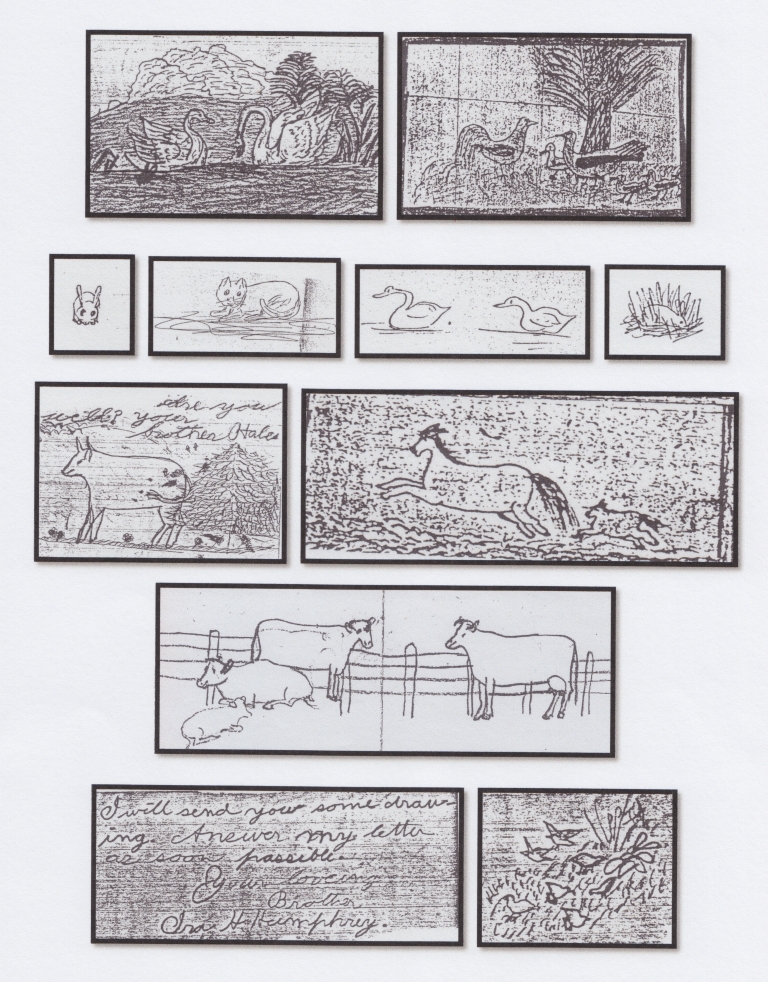 are you
well? your
brother Hale
I will send you some draw-
ing. Answer my letter
as soon passible.
Your loveing
Brother
Ira H. Humphrey.